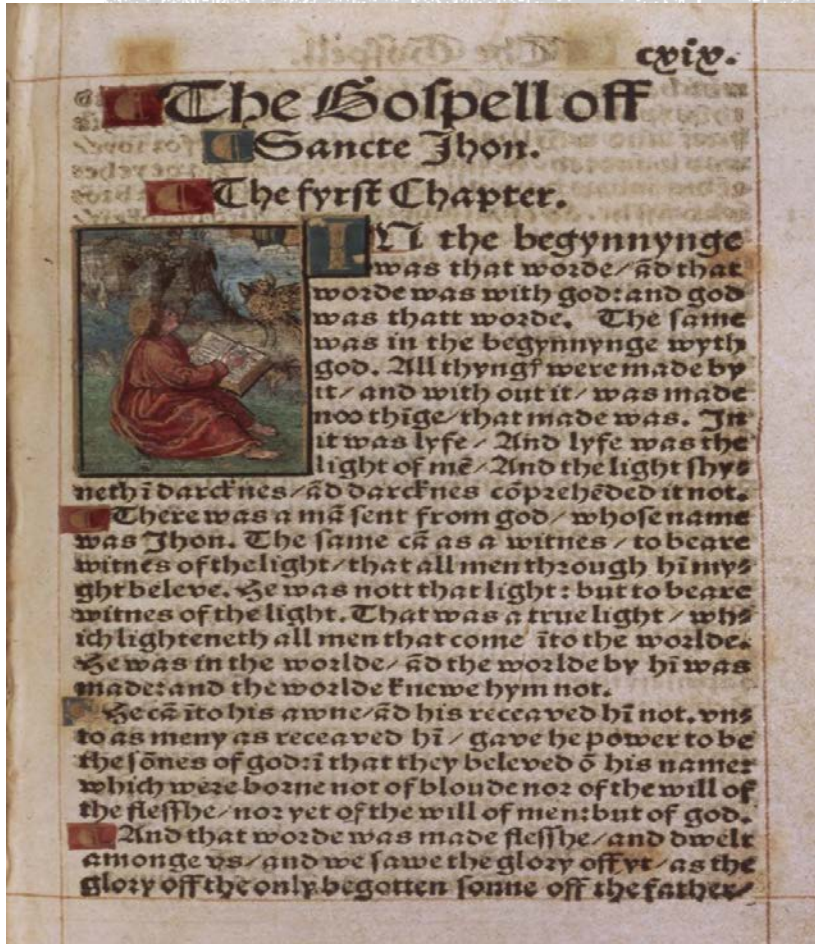 cxix.
The Gospell off
Sancte Jhon.
The fyrst Chapter.
IN the begynnynge
was that worde/ ãd that
worde was with god: and god
was thatt worde. The same
was in the begynnynge wyth
god. All thyngſ were made by
it/ and with out it/ was made
noo thĩge/ that made was. In
it was lyfe/ And lyfe was the
light of mẽ/ And the light shy⸗
neth ĩ darcknes/ ãd darcknes cõprehẽded it not.
There was a mã sent from god/ whose name
was Jhon. The same cã as a witnes/ to beare
witnes of the light/ that all men through hĩ my⸗
ght beleve. He was nott that light: but to beare
witnes of the light. That was a true light/ wh⸗
ich lighteneth all men that come ĩto the worlde.
He was in the worlde/ ãd the worlde by hĩ was
made: and the worlde knewe hym not.
He cã ĩto his awne/ ãd his receaved hĩ not. vn⸗
to as meny as receaved hĩ/ gave he power to be
the sõnes of god: ĩ that they beleved õ his name:
which were borne not of bloude nor of the will of
the flesshe/ nor yet of the will of men: but of god.
And that worde was made flesshe/ and dwelt
amonge vs/ and we sawe the glory off yt/ as the
glory off the only begotten sonne off the father/